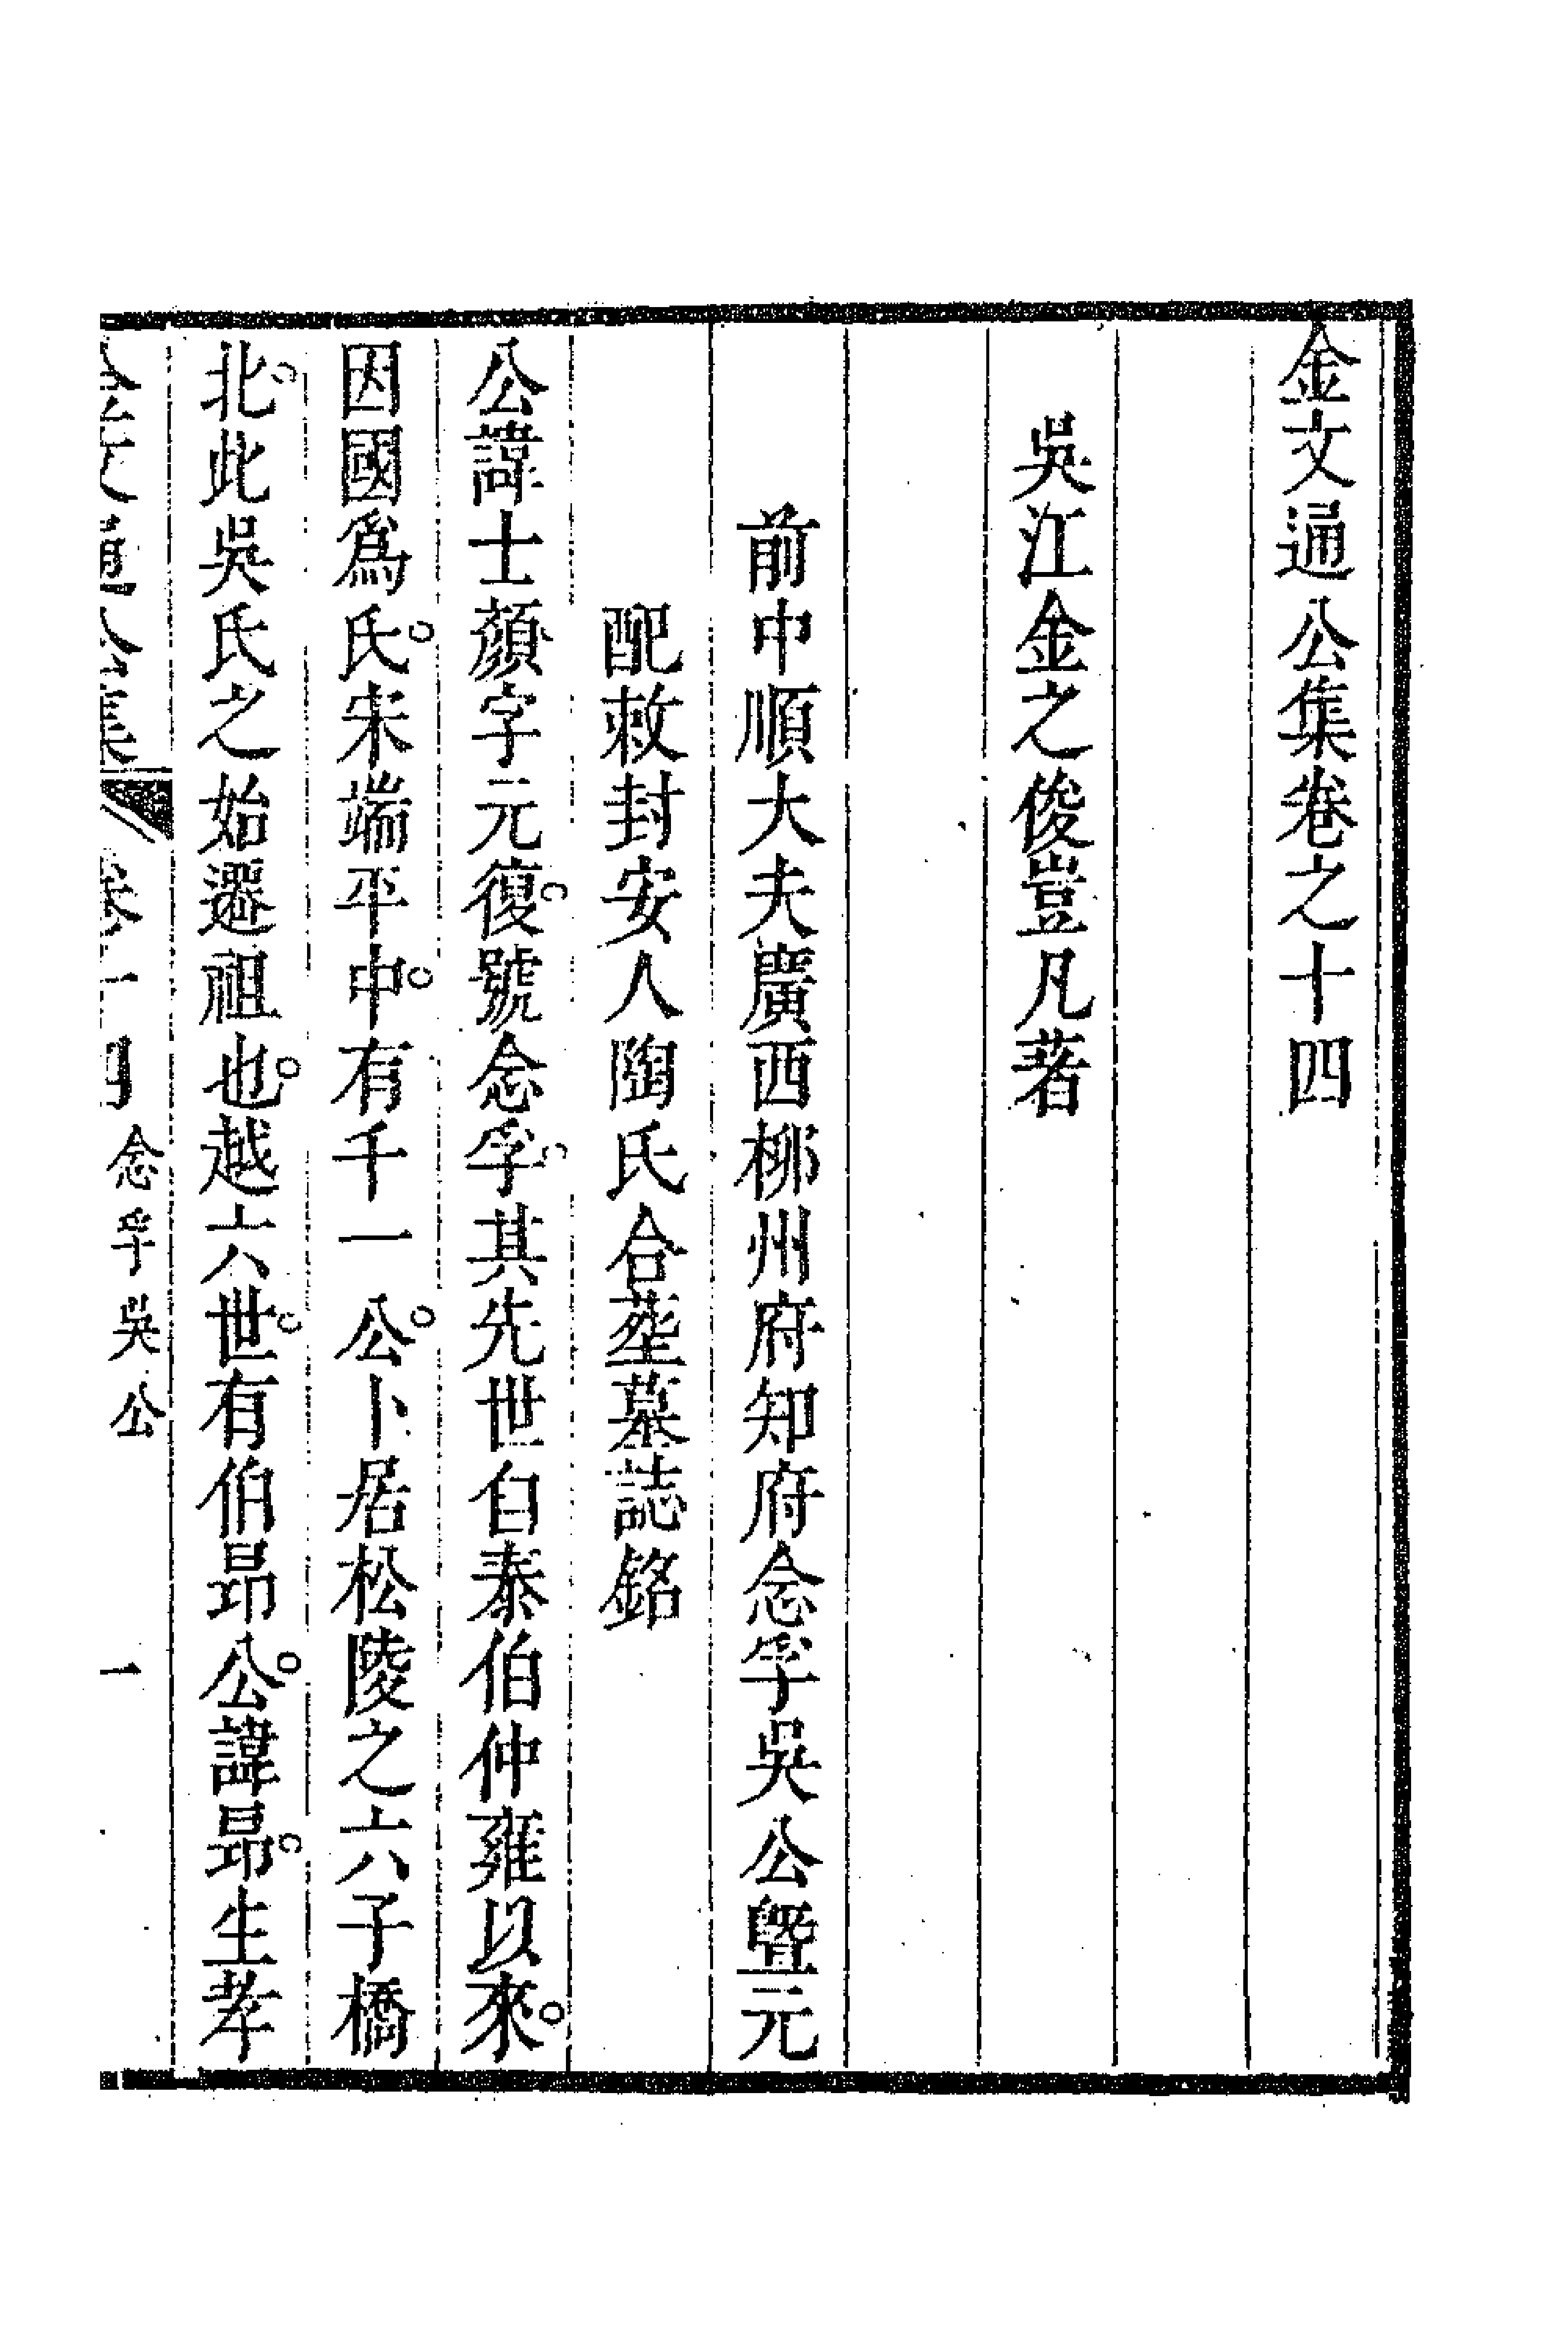 金文通公集卷之十四
吳江金之俊豈凡著
前中順大夫廣西柳州府知府念孚吳公曁元
配敕封安人陶氏合塟墓誌銘
公諱士顏字元復號念孚其先世自泰伯仲雍以來
因國爲氏宋端平中有千一公卜居松陵之六子橋
北此吳氏之始遷祖也越六世有伯昻公諱昻生孝
金文通公集 卷十四 念孚吳公 一